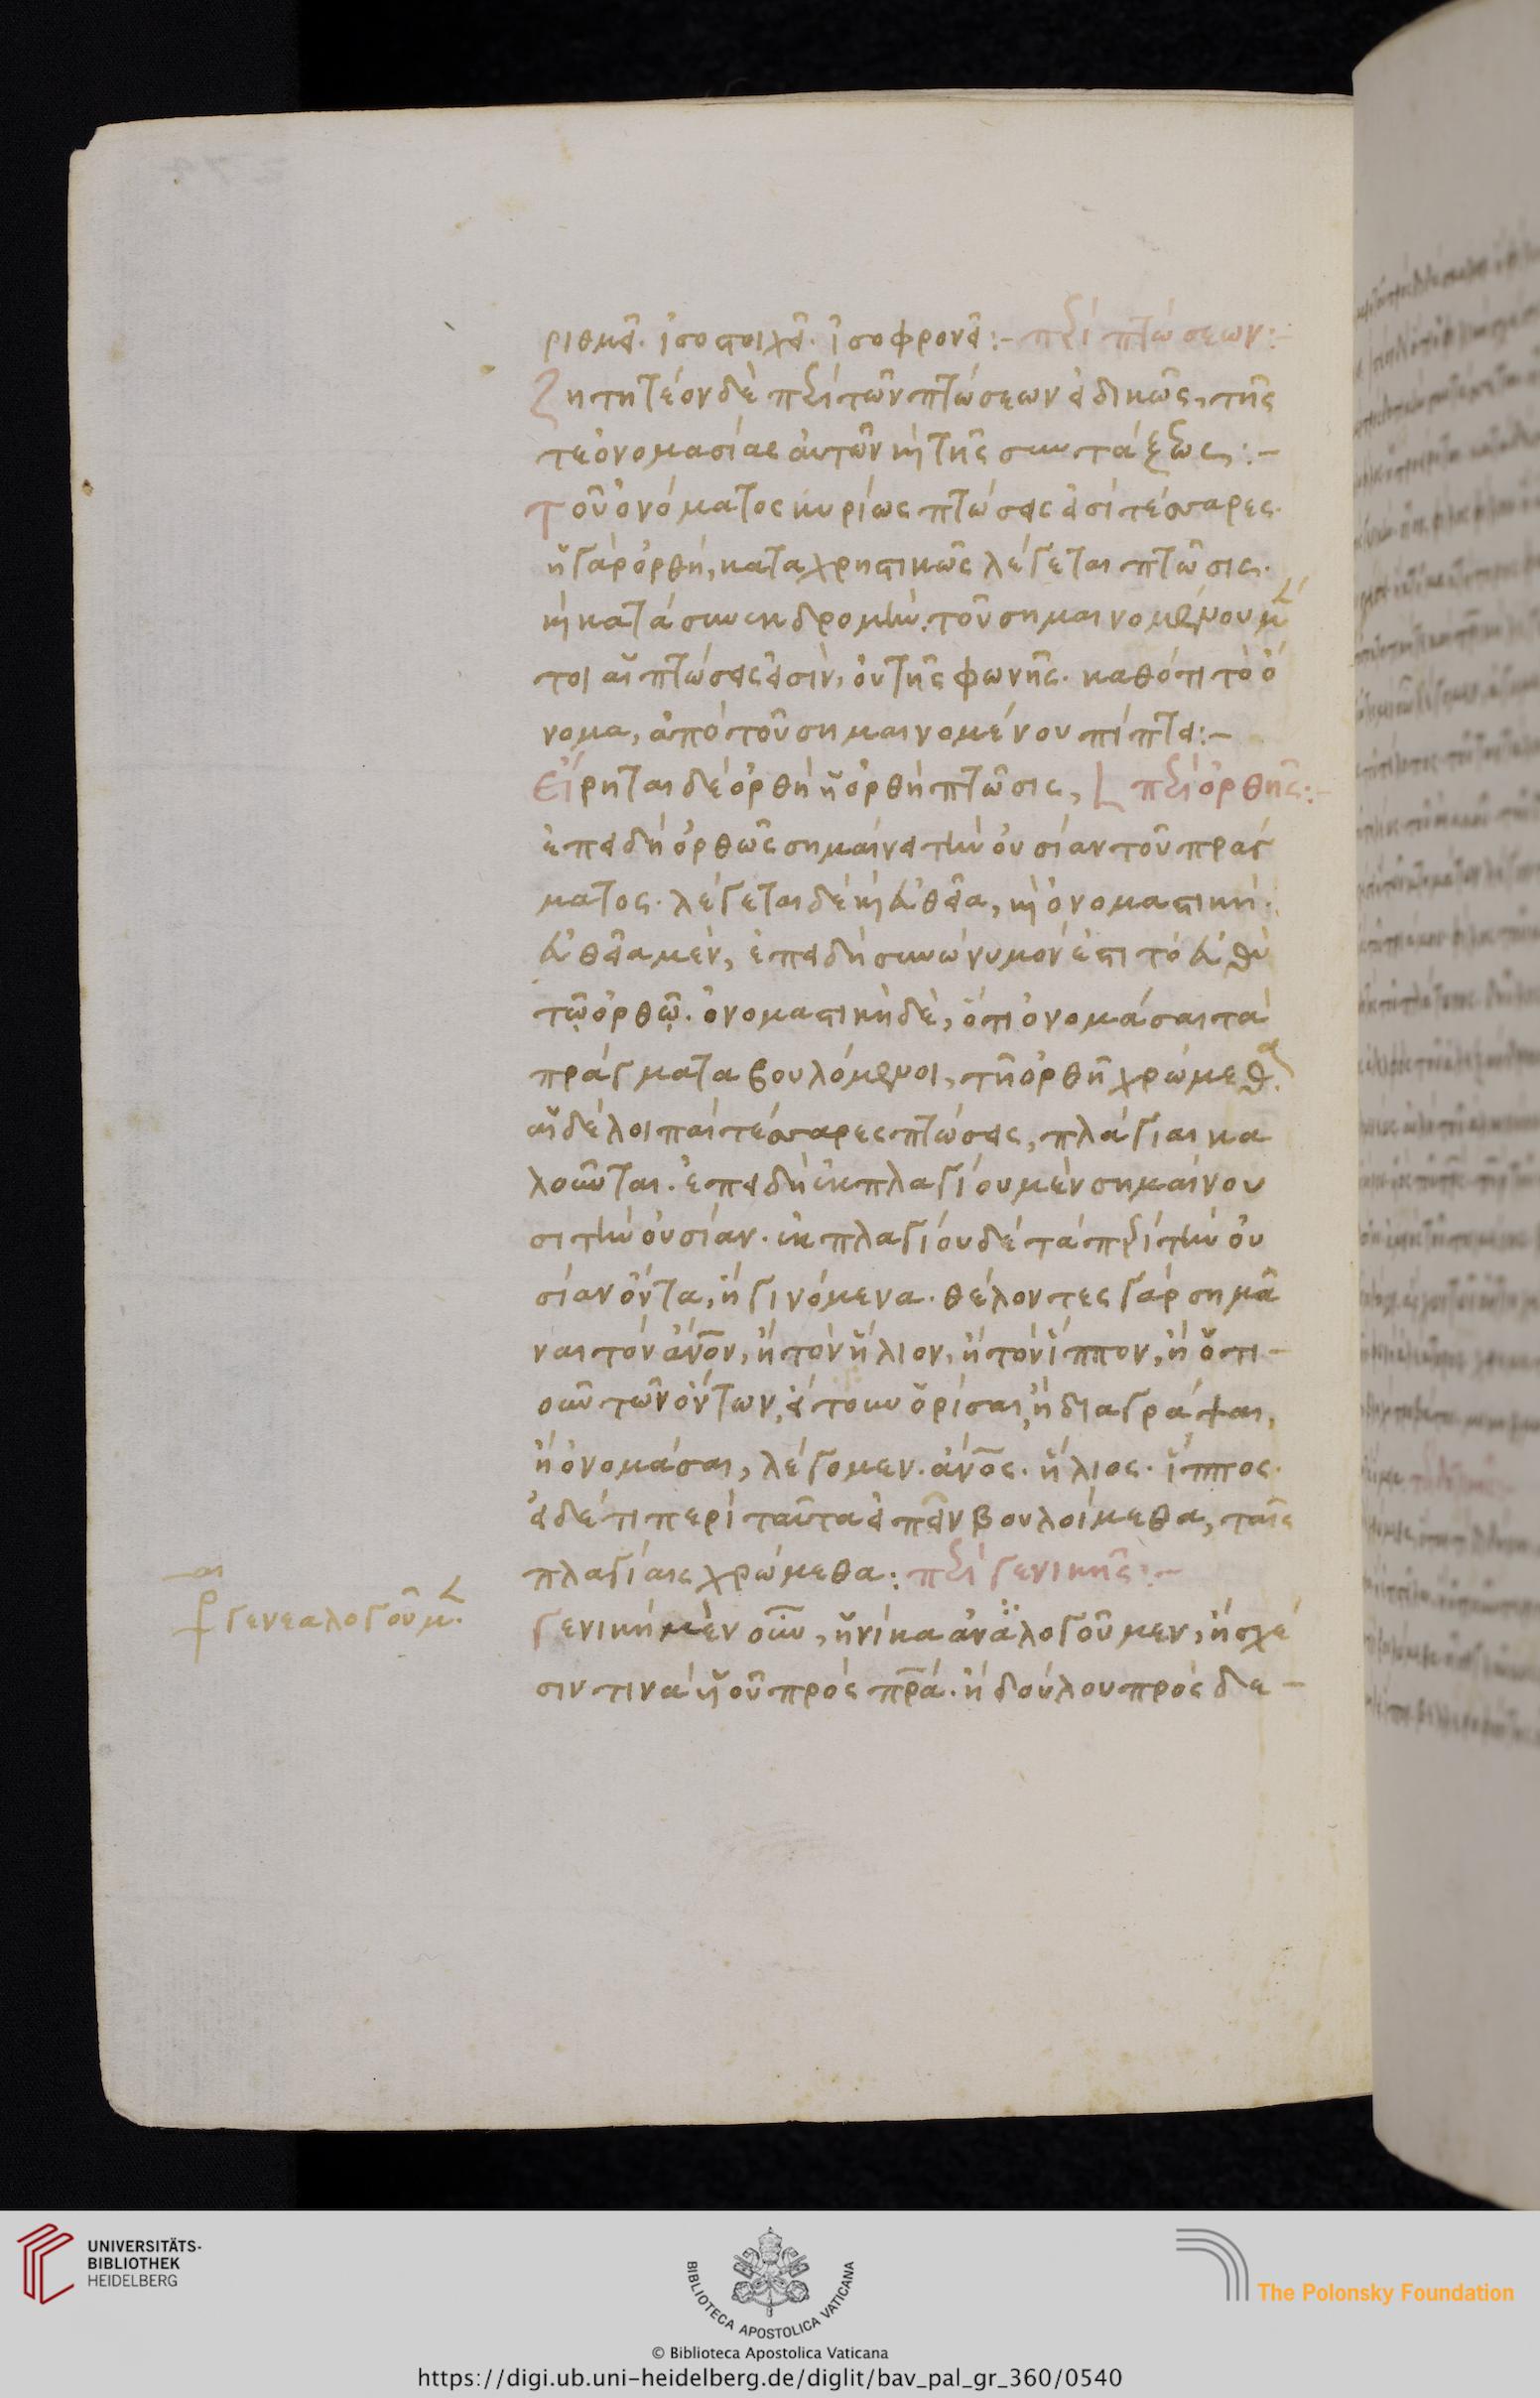 ριθμεῖ. ἰσοστοιχεῖ. ἰσοφρονεῖ:- περὶ πτώσεων:-
Ζητητέον δὲ περὶ τῶν πτώσεων εἰδικῶς, τῆς
τε ὀνομασίας αὐτῶν καὶ τῆς συντάξεως:-
Τοῦ ὀνόματος κυρίως πτώσεις εἰσὶ τέσσαρες.
ἡ γὰρ ὀρθή, καταχρηστικῶς λέγεται πτῶσις.
καὶ κατὰ συνεκδρομήν. τοῦ σημαινομένου μέν
τοι αἱ πτώσεις εἰσὶν, οὐ τῆς φωνῆς. καθότι τὸ ὄ
νομα, ἀπὸ τοῦ σημαινομένου πίπτει:-
Εἴρηται δὲ ὀρθὴ ἡ ὀρθὴ πτῶσις, περὶ ὀρθῆς:-
ἐπειδὴ ὀρθῶς σημαίνει τὴν οὐσίαν τοῦ πράγ
ματος. λέγεται δὲ καὶ εὐθεῖα, καὶ ὀνομαστική.
εὐθεῖα μὲν, ἐπειδὴ συνώνυμόν ἐστι τὸ εὐθὺ
τῷ ὀρθῷ. ὀνομαστικὴ δὲ, ὅτι ὀνομάσαι τὰ
πράγματα βουλόμενοι, τῆ ὀρθῆ χρώμεθα.
αἱ δὲ λοιπαὶ τέσσαρες πτώσεις, πλάγιαι κα
λοῦνται. ἐπειδὴ ἐκ πλαγίου μὲν σημαίνου
σι τὴν οὐσίαν. ἐκ πλαγίου δὲ τὰ περὶ τὴν οὐ
σίαν ὄντα, ἢ γινόμενα. θέλοντες γὰρ σημᾶ
ναι τὸν ἄνον, ἢ τὸν ἥλιον, ἢ τὸν ἵππον, ἢ ὅτι-
οῦν τῶν ὄντων, εἴτουν ὁρίσαι, ἢ διαγράψαι,
ἢ ὀνομάσαι, λέγομεν. ἄνος. ἥλιος. ἵππος.
εἰ δέ τι περὶ ταῦτα εἰπεῖν βουλοίμεθα, ταῖς
πλαγίαις χρώμεθα: περὶ γενικῆς:-
Γενικὴ μὲν οὖν, ἡνίκα ἀναλογοῦμεν, ἢ σχέ
σιν τινὰ υἱοῦ πρὸς πρα. ἢ δούλου πρὸς δε-
γενεαλογοῦμεν.
UNIVERSITÄTS-
BIBLIOTHEK
HEIDELBERG
BIBLIOTECA APOSTOLICA VATICANA
The Polonsky Foundation
© Biblioteca Apostolica Vaticana
https://digi.ub.uni-heidelberg.de/diglit/bav_pal_gr_360/0540